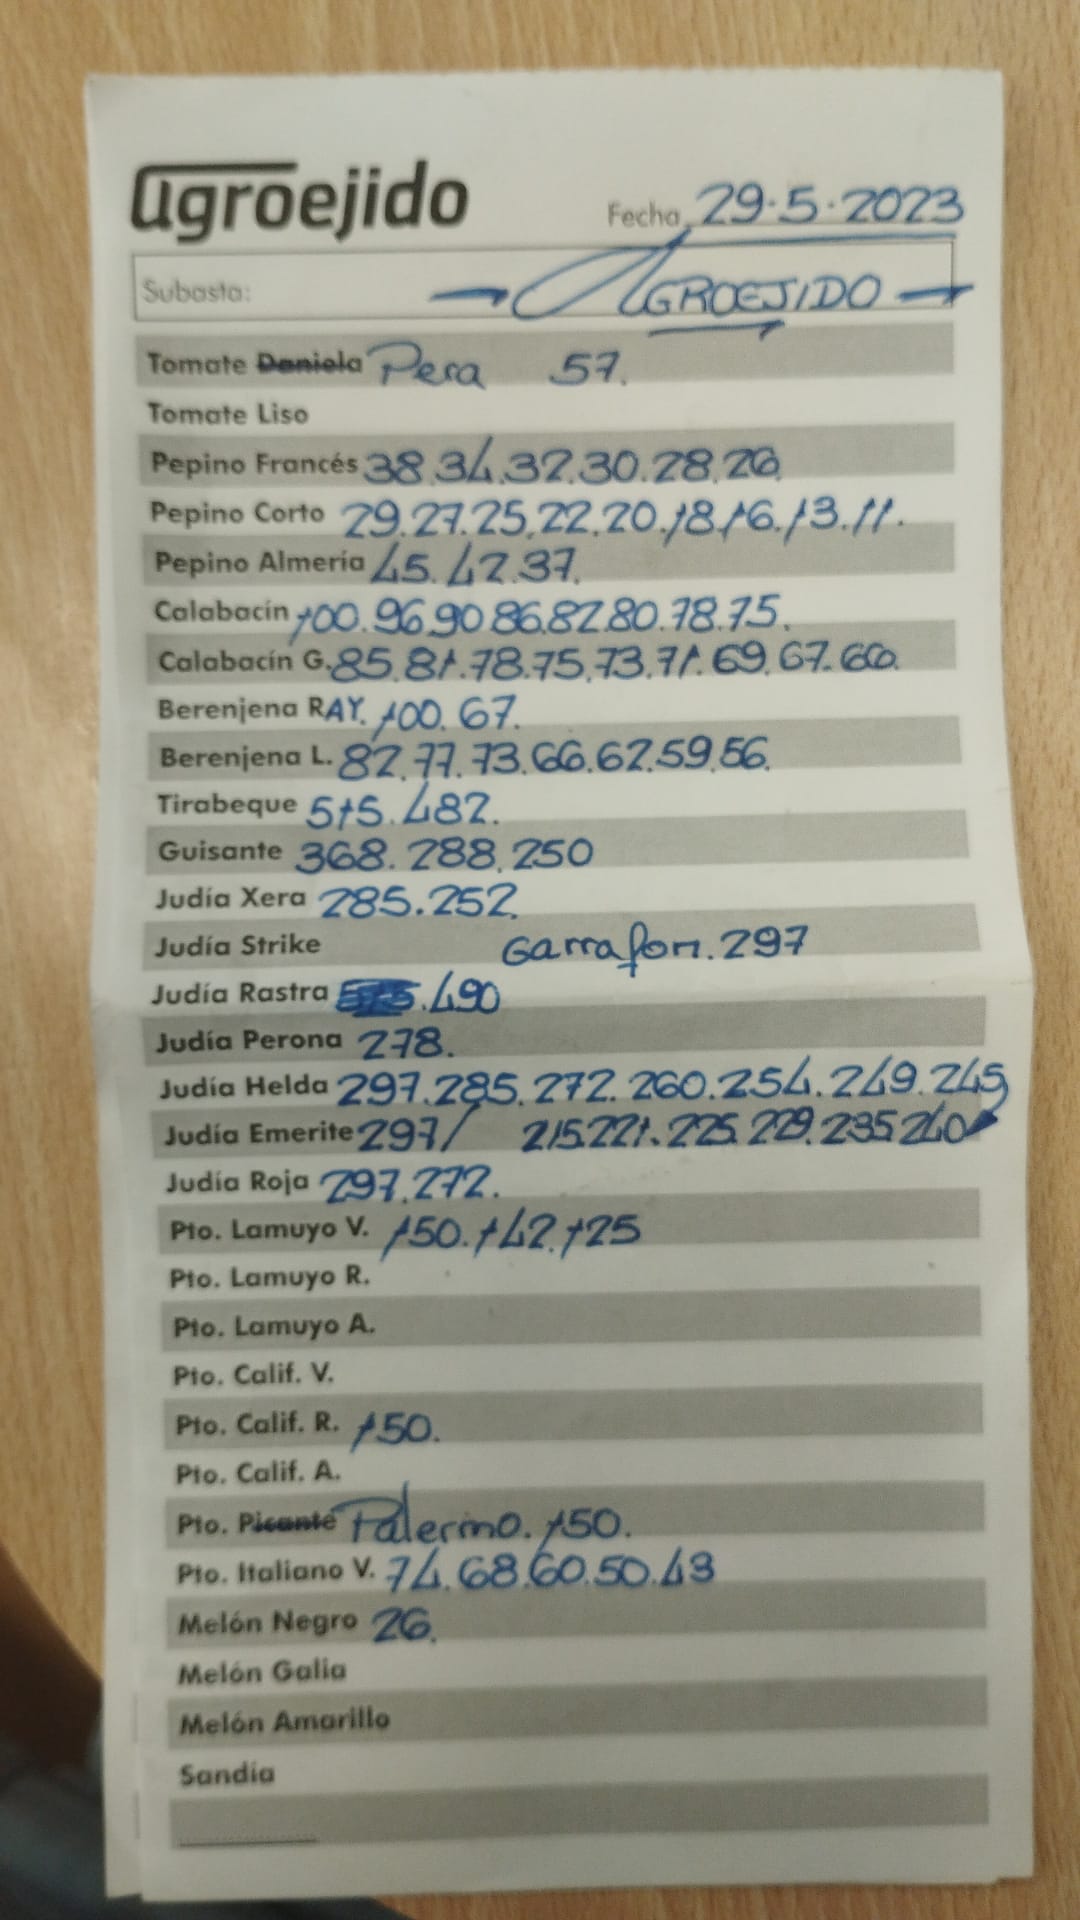 agroejido
Fecha 29.5.2023
Subasta: AGROEJIDO
Tomate Daniela Pera 57.
Tomate Liso
Pepino Francés 38.34.32.30.28.26.
Pepino Corto 29.27.25.22.20.18.16.13.11.
Pepino Almería 45.42.37.
Calabacín 100.96.90.86.82.80.78.75.
Calabacín G. 85.81.78.75.73.71.69.67.66.
Berenjena RAY. 100.67.
Berenjena L. 82.77.73.66.62.59.56.
Tirabeque 515.482.
Guisante 368.288.250
Judía Xera 285.252.
Judía Strike Garrafon.297
Judía Rastra .490
Judía Perona 278.
Judía Helda 297.285.272.260.254.249.245
Judía Emerite 297/ 215.221.225.229.235.240
Judía Roja 297.272.
Pto. Lamuyo V. 150.142.125
Pto. Lamuyo R.
Pto. Lamuyo A.
Pto. Calif. V.
Pto. Calif. R. 150.
Pto. Calif. A.
Pto. Picante Palermo. 150.
Pto. Italiano V. 74.68.60.50.43
Melón Negro 26.
Melón Galia
Melón Amarillo
Sandía